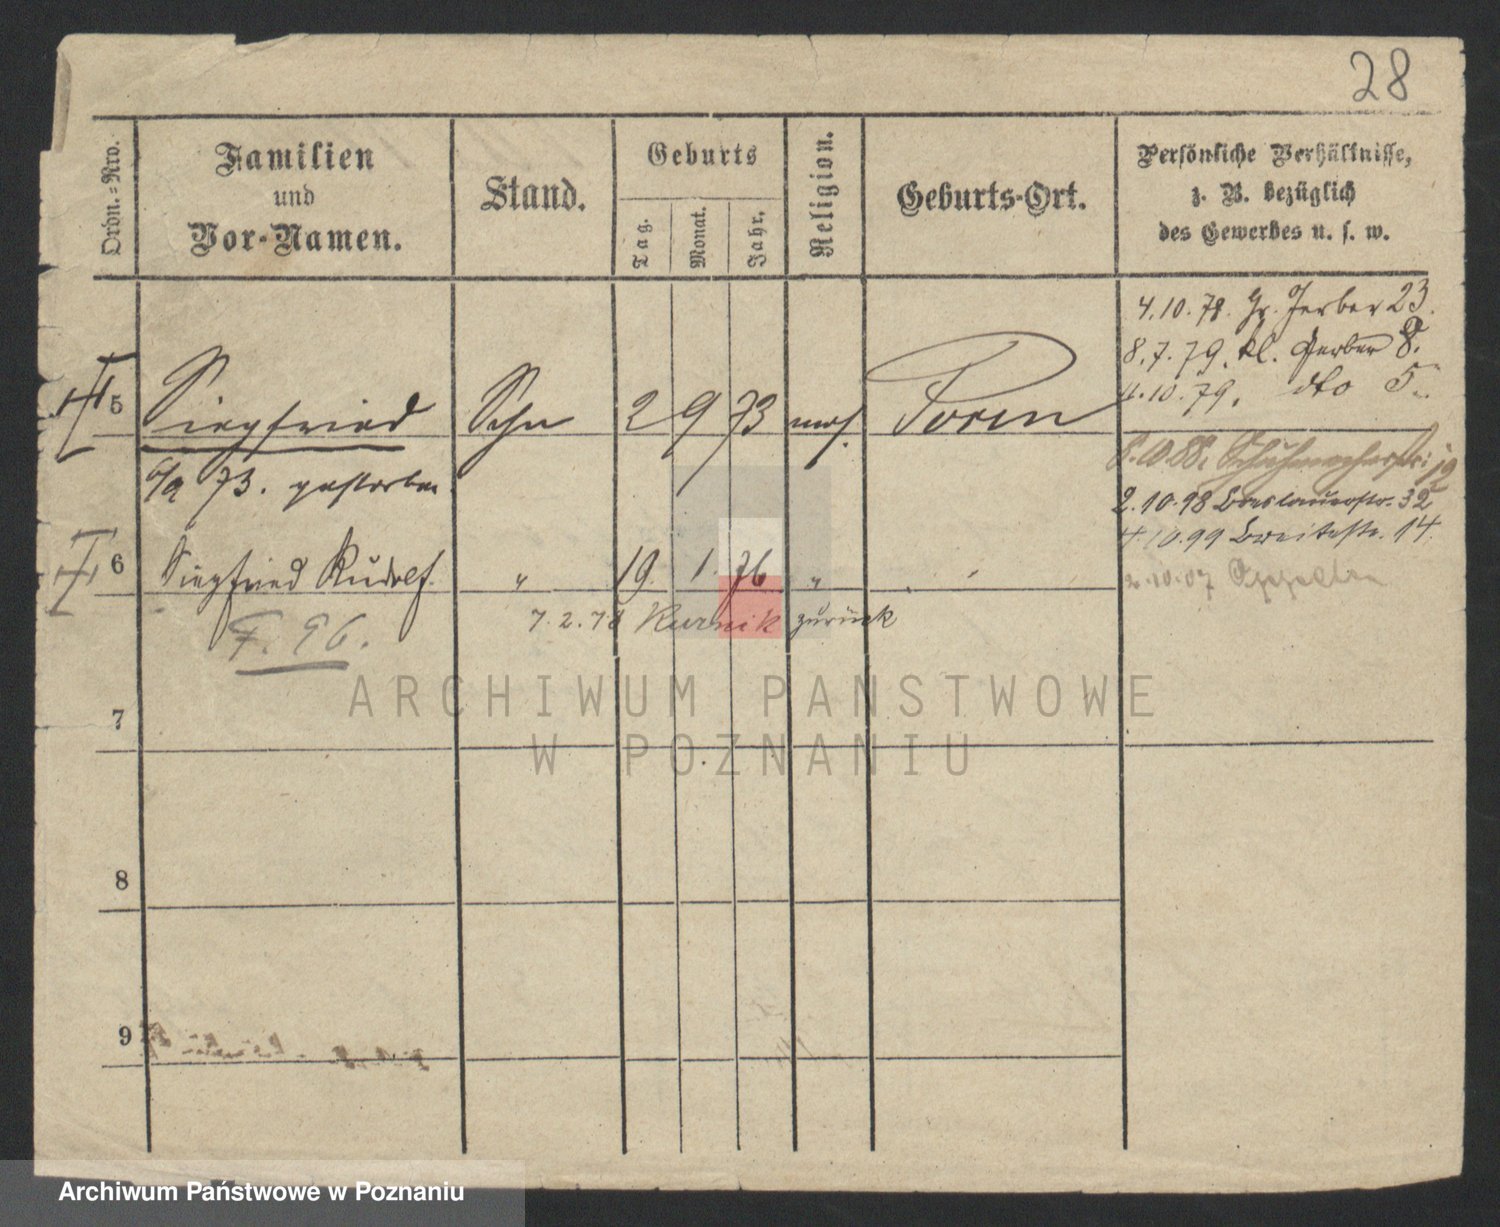 28
Ordn.=Nro.
Familien
und
Vor-Namen.
Stand.
Geburts
Tag.
Monat.
Jahr.
Religion.
Geburts-Ort.
Persönliche Verhältnisse,
z. B. bezüglich
des Gewerbes u. s. w.
4.10.78. Gr. Gerber 23.
8.7.79. kl. Gerber 8.
4.10.79. dto 5.
5 Siegfried Sohn 2 9 73 mos. Posen
6/9 73. gestorben
8.10.88. Schuhmacherstr. 12
2.10.98 Breslauerstr. 32
4.10.99 Breitestr. 14.
2.10.07
6 Siegfried Rudolf. " 19. 1. 76 "
7.2.78 Kurnik zurück
F. 96.
7
8
9
ARCHIWUM PAŃSTWOWE
W POZNANIU
Archiwum Państwowe w Poznaniu